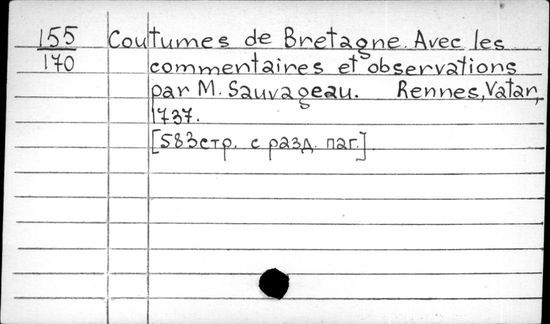 155 Coutumes de Bretagne. Avec les
170 commentaires et observations
par M. Sauvageau. Rennes, Vatar,
1737.
[583стр. с разд. паг.]